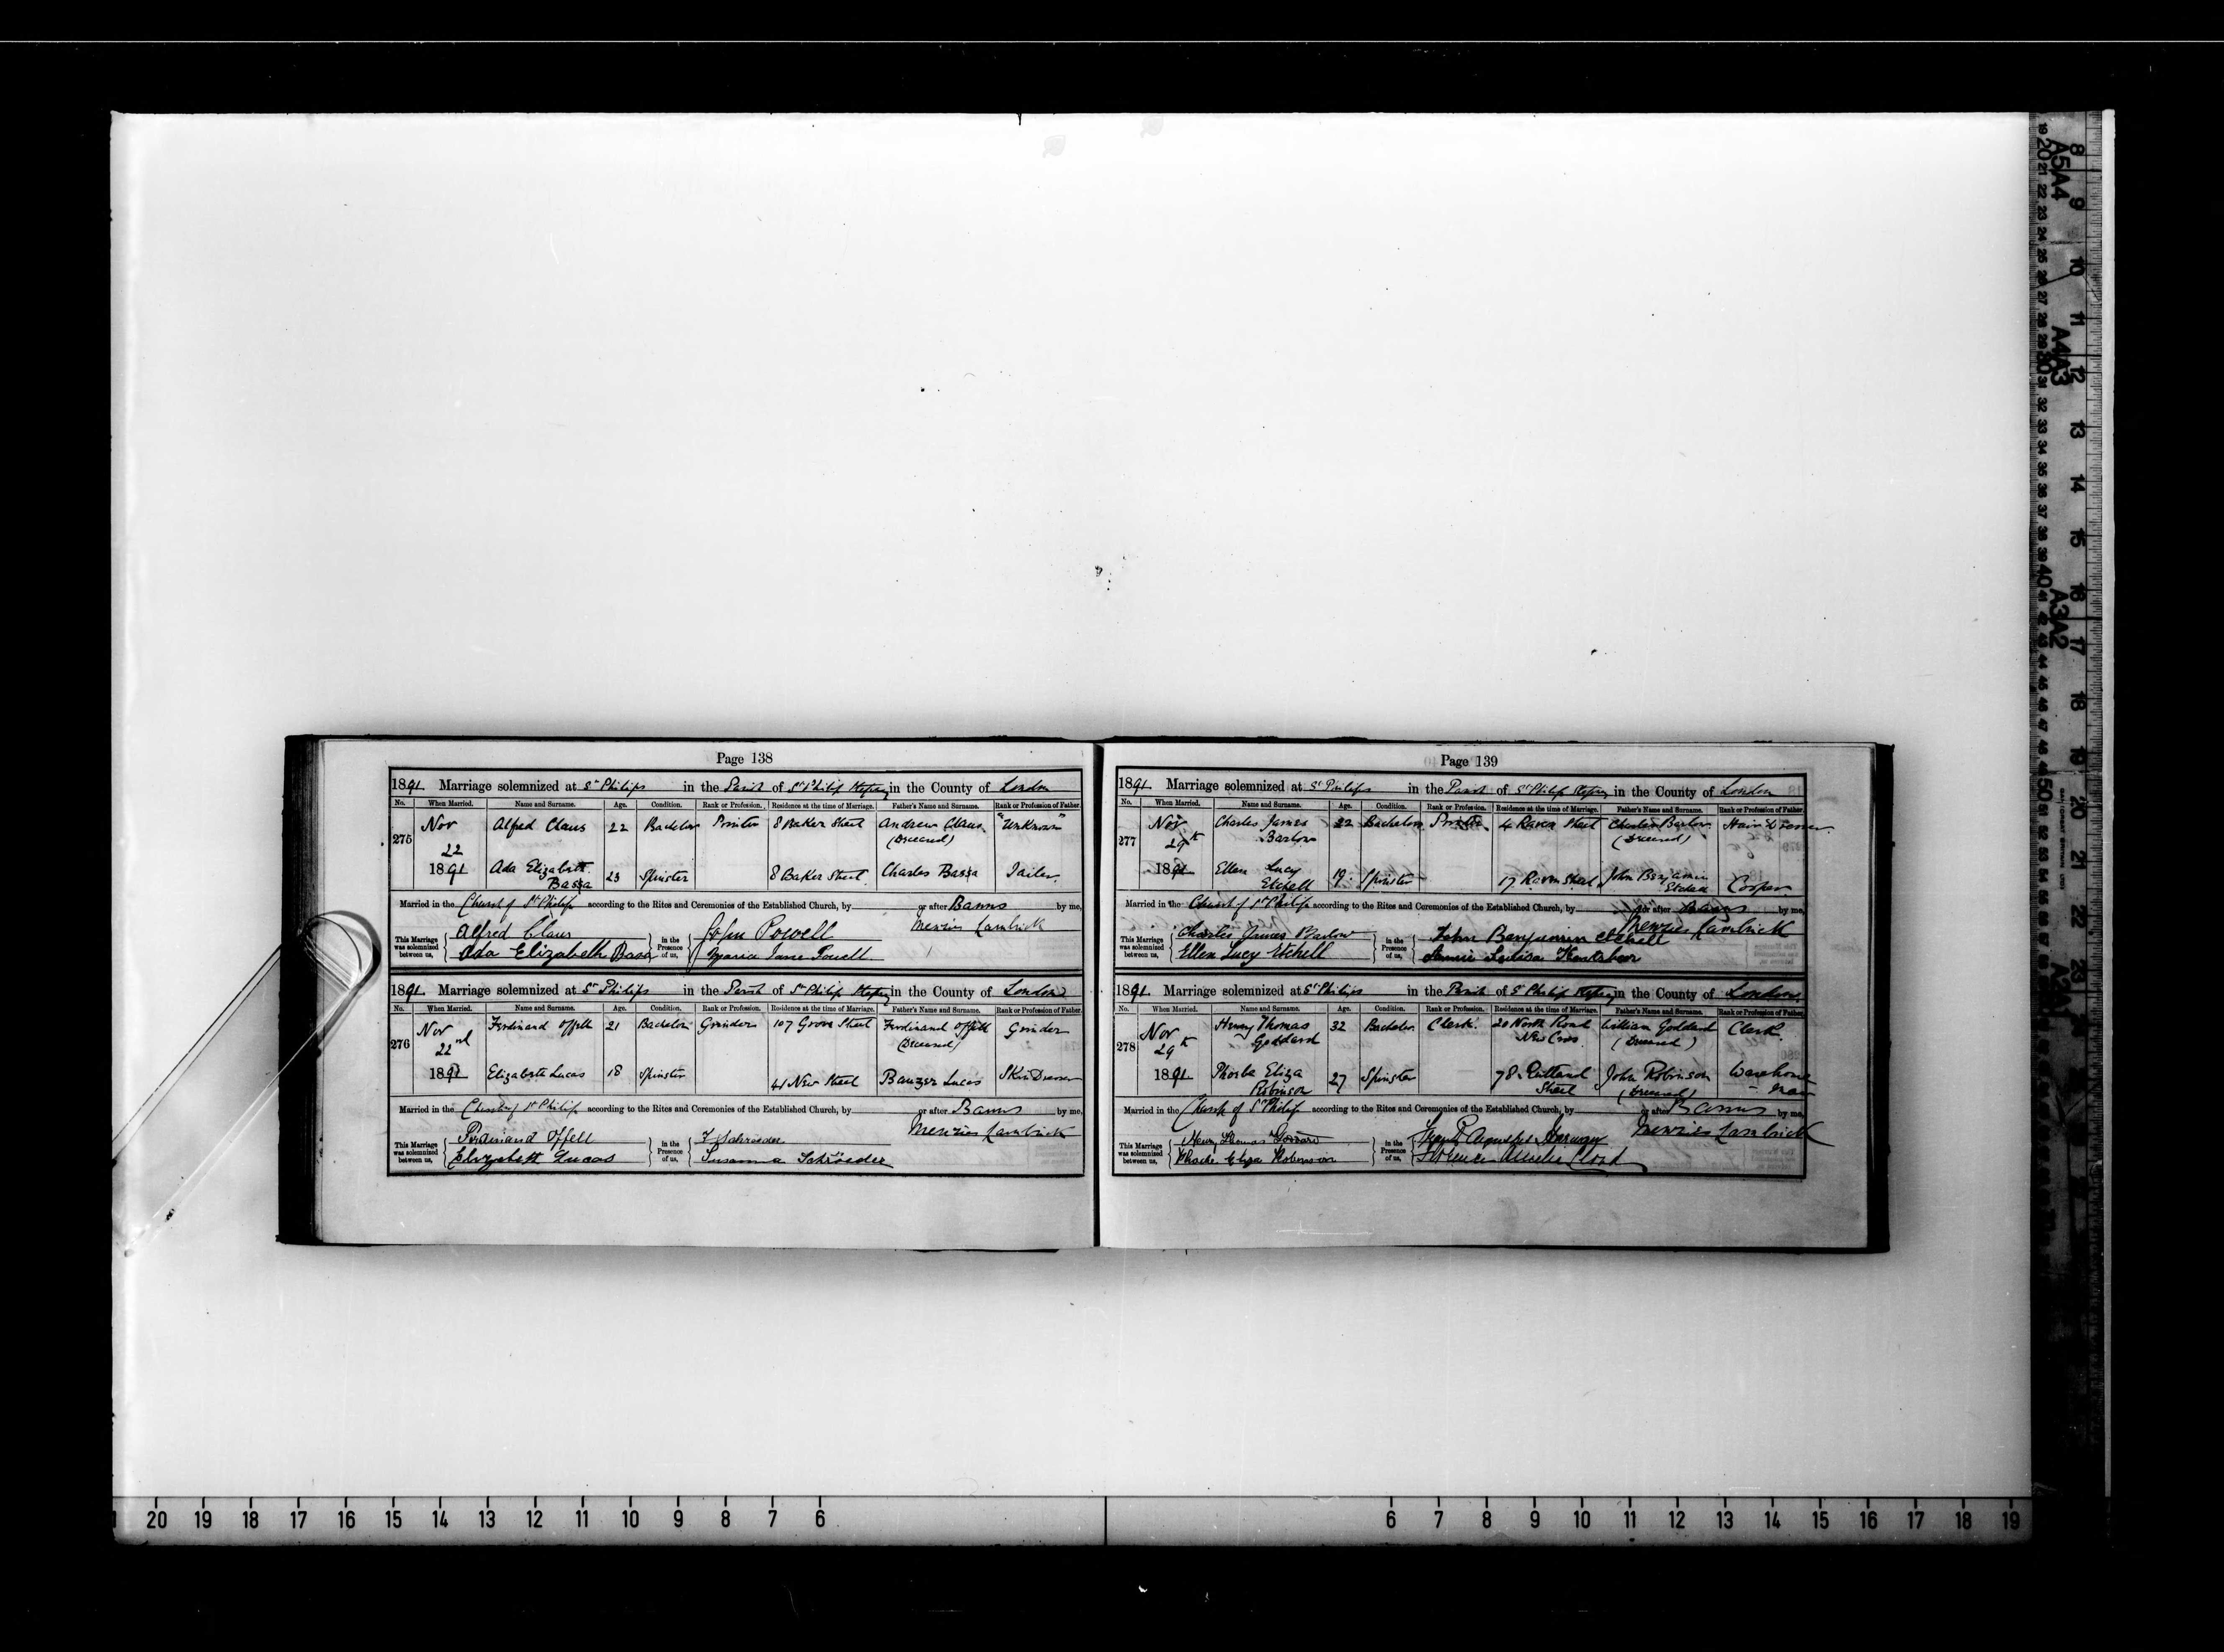 Page 138
1891. Marriage solemnized at St Philips in the Parish of St Philip Stepney in the County of London
No. When Married. Name and Surname. Age. Condition. Rank or Profession. Residence at the time of Marriage. Father's Name and Surname. Rank or Profession of Father.
275 Nov 22 1891 Alfred Claus 22 Bachelor Printer 8 Baker Street Andrew Claus (Deceased) "Unknown"
Ada Elizabeth Bassa 23 Spinster 8 Baker Street Charles Bassa Tailor.
Married in the Church of St Philip according to the Rites and Ceremonies of the Established Church, by or after Banns by me,
Menzies Lambrick
This Marriage was solemnized between us, Alfred Claus in the Presence of us, John Powell
Ada Elizabeth Bassa Maria Jane Powell
1891. Marriage solemnized at St Philips in the Parish of St Philip Stepney in the County of London
No. When Married. Name and Surname. Age. Condition. Rank or Profession. Residence at the time of Marriage. Father's Name and Surname. Rank or Profession of Father.
276 Nov 22nd 1891 Ferdinand Offell 21 Bachelor Grinder 107 Grove Street Ferdinand Offell (Deceased) Grinder
Elizabeth Lucas 18 Spinster 41 New Street Lucas Skin Dresser
Married in the Church of St Philip according to the Rites and Ceremonies of the Established Church, by or after Banns by me,
Menzies Lambrick
This Marriage was solemnized between us, Ferdinand Offell in the Presence of us, F Schroeder
Elizabeth Lucas Susanna Schröeder
Page 139
1891. Marriage solemnized at St Philips in the Parish of St Philip Stepney in the County of London
No. When Married. Name and Surname. Age. Condition. Rank or Profession. Residence at the time of Marriage. Father's Name and Surname. Rank or Profession of Father.
277 Nov 29th 1891 Charles James Barlow 22 Bachelor Printer 4 Raven Street Charles Barlow (Deceased) Hair Dresser
Ellen Lucy Etchell 19 Spinster 17 Raven Street John Benjamin Etchell Cooper
Married in the Church of St Philip according to the Rites and Ceremonies of the Established Church, by or after Banns by me,
Menzies Lambrick
This Marriage was solemnized between us, Charles James Barlow in the Presence of us, John Benjamin Etchell
Ellen Lucy Etchell Annie Louisa
1891. Marriage solemnized at St Philips in the Parish of St Philip Stepney in the County of London
No. When Married. Name and Surname. Age. Condition. Rank or Profession. Residence at the time of Marriage. Father's Name and Surname. Rank or Profession of Father.
278 Nov 29th 1891 Henry Thomas Goddard 32 Bachelor Clerk. 20 North Road New Cross William Goddard (Deceased) Clerk.
Phoebe Eliza Robinson 27 Spinster 78 Rutland Street John Robinson (Deceased) Warehouse Man
Married in the Church of St Philip according to the Rites and Ceremonies of the Established Church, by or after Banns by me,
Menzies Lambrick
This Marriage was solemnized between us, Henry Thomas Goddard in the Presence of us, Augustus
Phoebe Eliza Robinson Florence Amelia
20 19 18 17 16 15 14 13 12 11 10 9 8 7 6 6 7 8 9 10 11 12 13 14 15 16 17 18 19
8 9 10 11 12 13 14 15 16 17 18 19 20 21 22 23
A5 A4
A4 A3
A3 A2
A2 A1